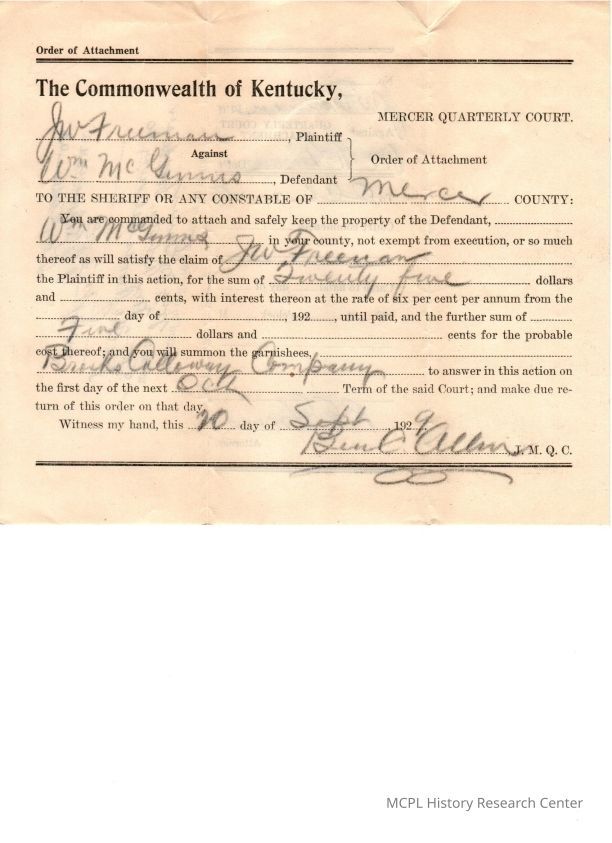 Order of Attachment
The Commonwealth of Kentucky,
MERCER QUARTERLY COURT.
JW Freeman, Plaintiff
Against
Order of Attachment
Wm McGinnis, Defendant
TO THE SHERIFF OR ANY CONSTABLE OF Mercer COUNTY:
You are commanded to attach and safely keep the property of the Defendant,
Wm McGinnis in your county, not exempt from execution, or so much
thereof as will satisfy the claim of JW Freeman
the Plaintiff in this action, for the sum of Twenty five dollars
and cents, with interest thereon at the rate of six per cent per annum from the
day of , 192 , until paid, and the further sum of
Five dollars and cents for the probable
cost thereof; and you will summon the garnishees,
Calloway Company to answer in this action on
the first day of the next Oct Term of the said Court; and make due re-
turn of this order on that day.
Witness my hand, this 20 day of Sept 1929
Ben C Allin J. M. Q. C.
MCPL History Research Center